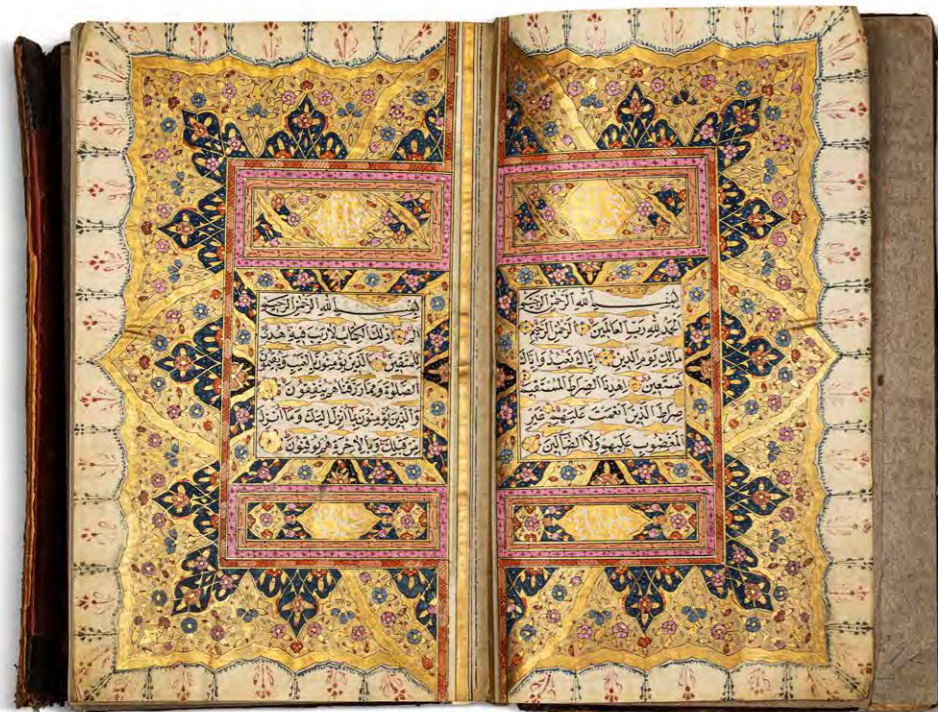 بسم الله الرحمن الرحيم
الحمد لله رب العالمين الرحمن الرحيم
مالك يوم الدين إياك نعبد وإياك
نستعين اهدنا الصراط المستقيم
صراط الذين أنعمت عليهم غير
المغضوب عليهم ولا الضالين
بسم الله الرحمن الرحيم
الم ذلك الكتاب لا ريب فيه هدى
للمتقين الذين يؤمنون بالغيب ويقيمون
الصلوة ومما رزقناهم ينفقون
والذين يؤمنون بما أنزل إليك وما أنزل
من قبلك وبالآخرة هم يوقنون